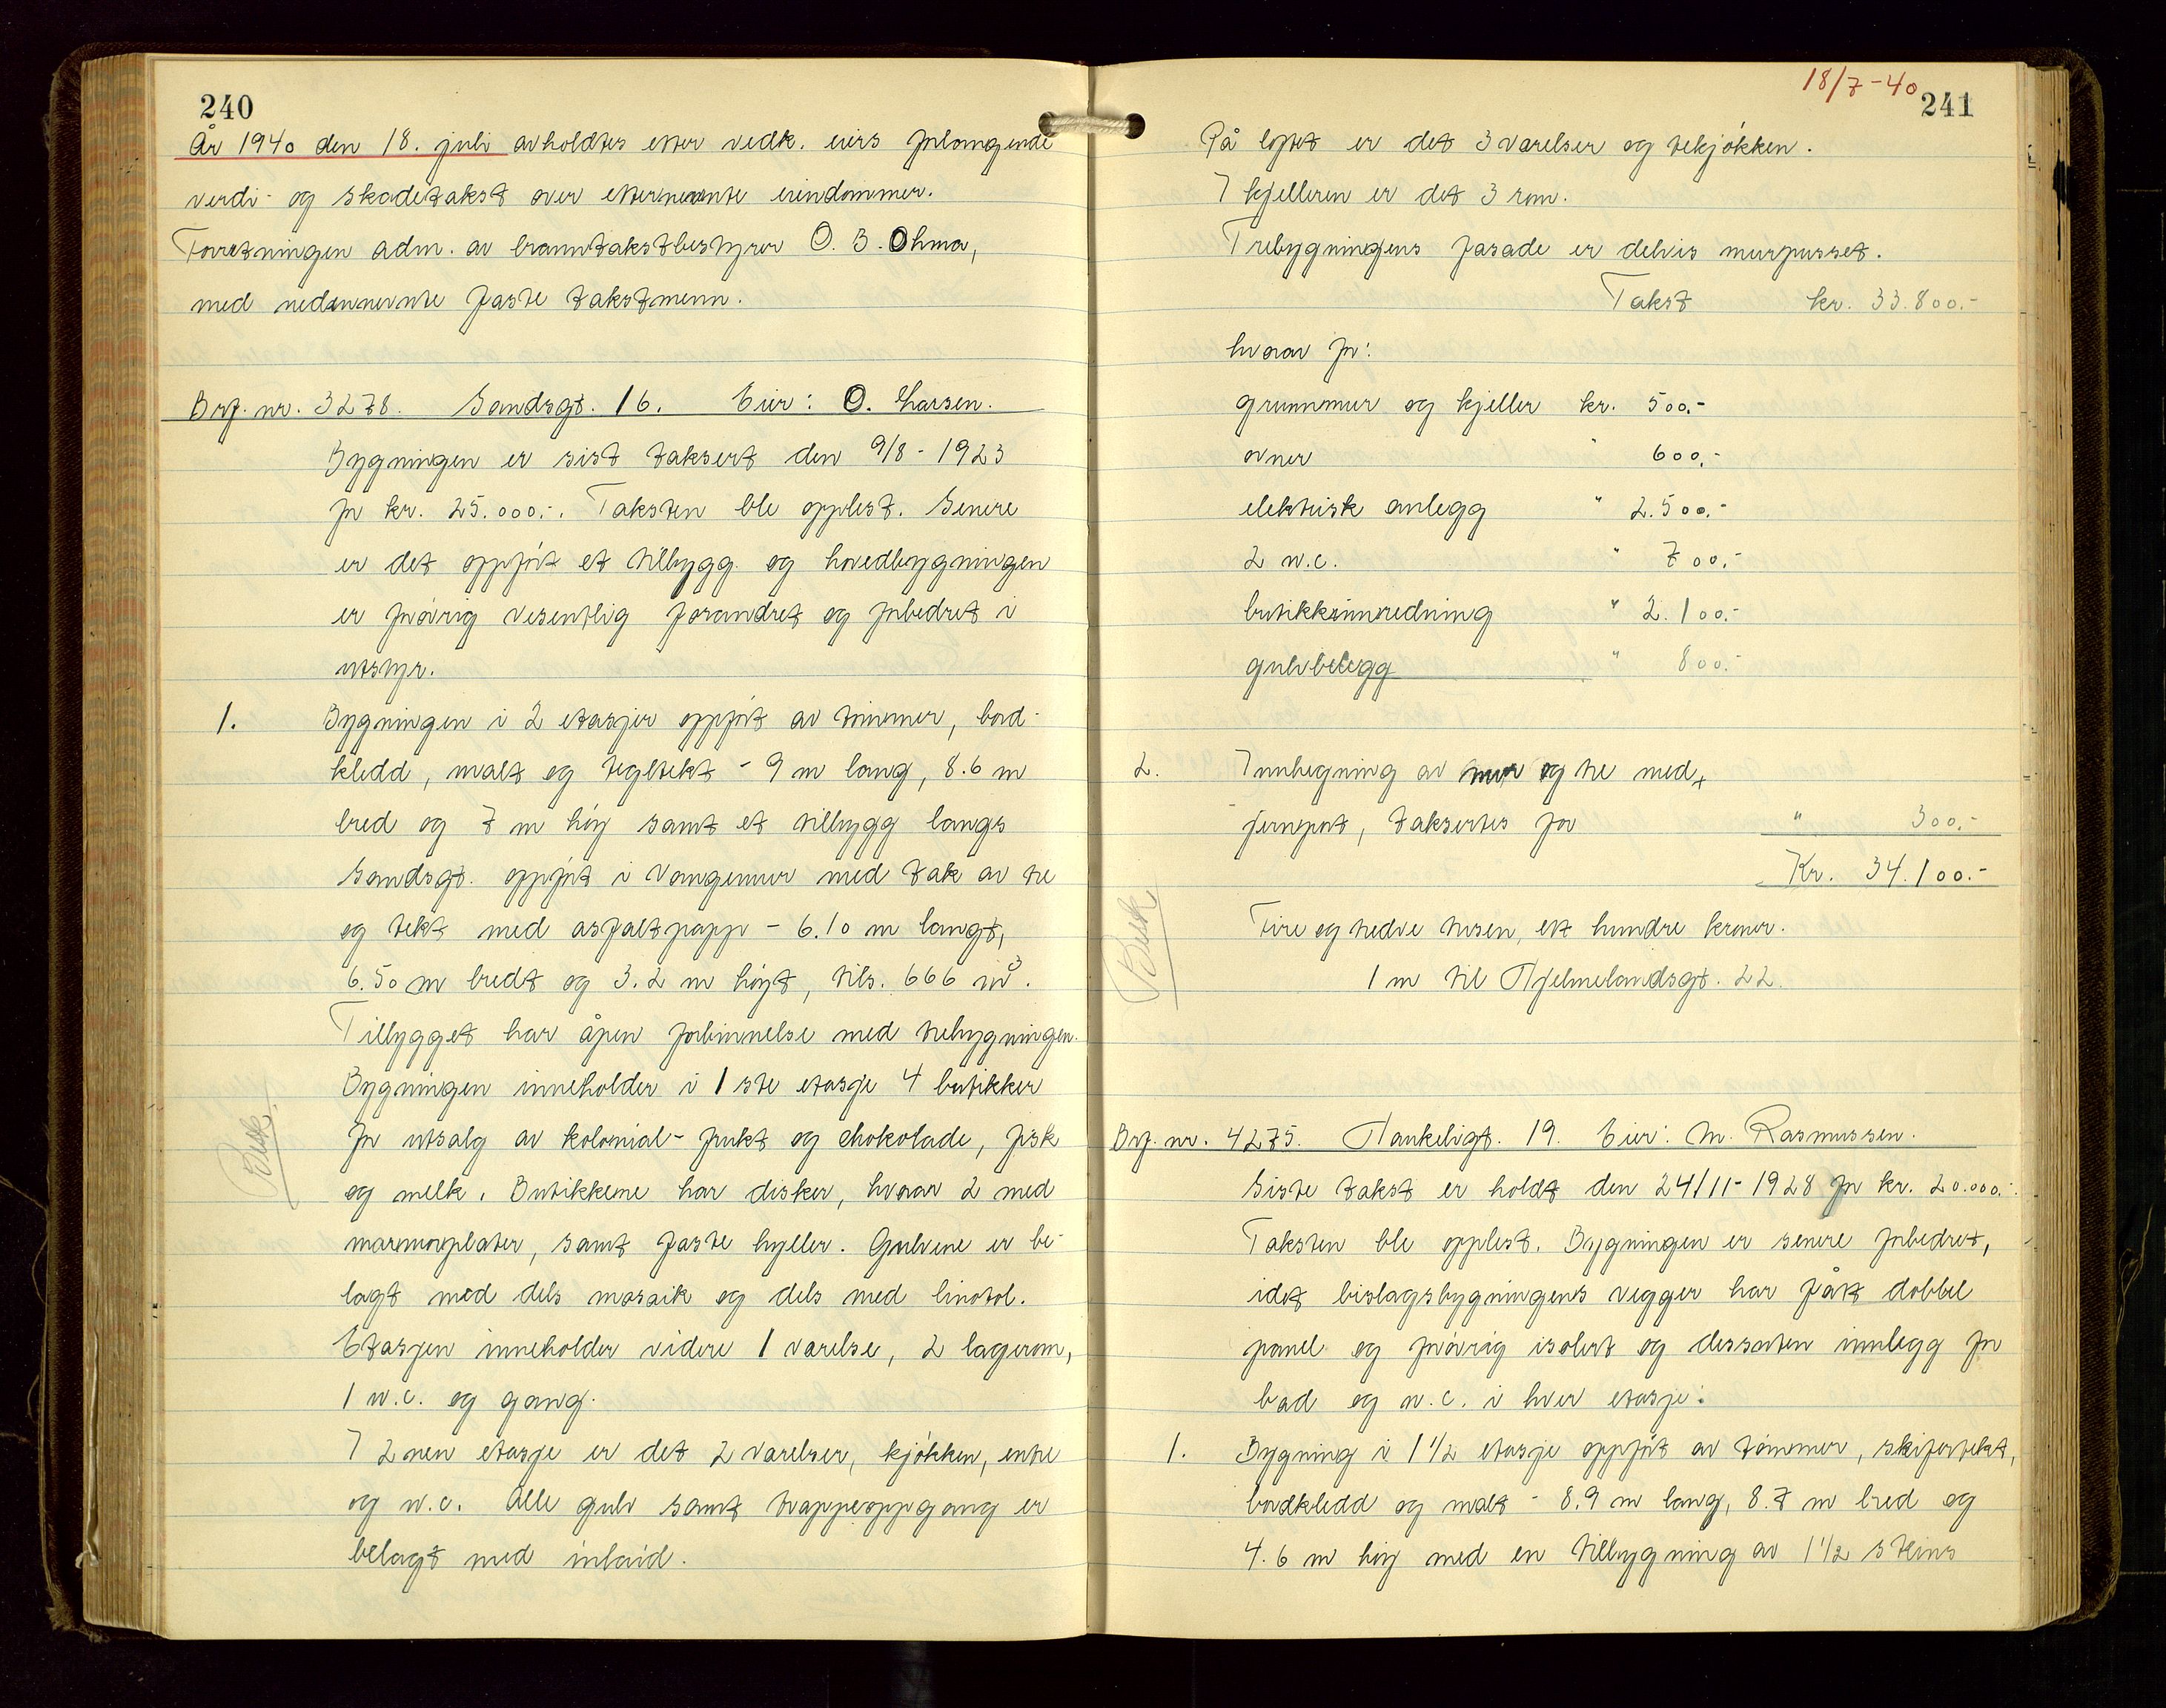 240
År 1940 den 18. juli avholdtes etter vedk. eiers forlangende
verdi- og skadetakst over etternevnte eiendommer.
Forretningen adm. av branntakstbestyrer O. B. Ohma,
med nedennevnte faste takstmenn.
Brf. nr. 3278. Sandsgt. 16. Eier: O. Larsen.
Bygningen er sist taksert den 9/8-1923
for kr. 25.000.-. Taksten ble opplest. Senere
er det oppført et tilbygg og hovedbygningen
er forøvrig vesentlig forandret og forbedret i
utstyr.
1. Bygningen i 2 etasjer oppført av tømmer, bord-
kledd, malt og tegltekt - 9 m lang, 8.6 m
bred og 7 m høy samt et tilbygg langs
Sandsgt. oppført i vangemur med tak av tre
og tekt med asfaltpapp - 6.10 m langt,
6.50 m bredt og 3.2 m høyt, tils. 666 m³.
Tilbygget har åpen forbinnelse med trebygningen.
Bygningen inneholder i 1ste etasje 4 butikker
for utsalg av kolonial- frukt og chokolade, fisk
og melk. Butikkene har disker, hvorav 2 med
marmorplater, samt faste hyller. Gulvene er be-
lagt med dels mosaik og dels med linotol.
Etasjen inneholder videre 1 værelse, 2 lagerrom,
1 w.c. og gang.
I 2nen etasje er det 2 værelser, kjøkken, entre
og w.c. Alle gulv samt trappeoppgang er
belagt med inlaid.
Besk.
18/7-40
241
På loftet er det 3 værelser og tekjøkken.
I kjelleren er det 3 rom.
Trebygningens fasade er delvis murpusset.
Takst kr. 33.800.-
hvorav for:
grunnmur og kjeller kr. 500.-
ovner " 600.-
elektrisk anlegg " 2.500.-
2 w.c. " 700.-
butikkinnredning " 2.100.-
gulvbelegg " 800.-
2. Innhegning av mur og tre med
jernport, taksertes for " 300.-
Kr. 34.100.-
Fire og tredve tusen, ett hundre kroner.
1 m til Hjelmelandsgt. 22.
Besk
Brf. nr. 4275. Haukeligt. 19. Eier: M. Rasmussen.
Siste takst er holdt den 24/11-1928 for kr. 20.000.-.
Taksten ble opplest. Bygningen er senere forbedret,
idet bislagsbygningens vegger har fått dobbel
panel og forøvrig isolert og dessuten innlegg for
bad og w.c. i hver etasje:
1. Bygning i 1 1/2 etasje oppført av tømmer, skifertekt,
bordkledd og malt - 8.9 m lang, 8.7 m bred og
4.6 m høy med en tilbygning av 1 1/2 steins